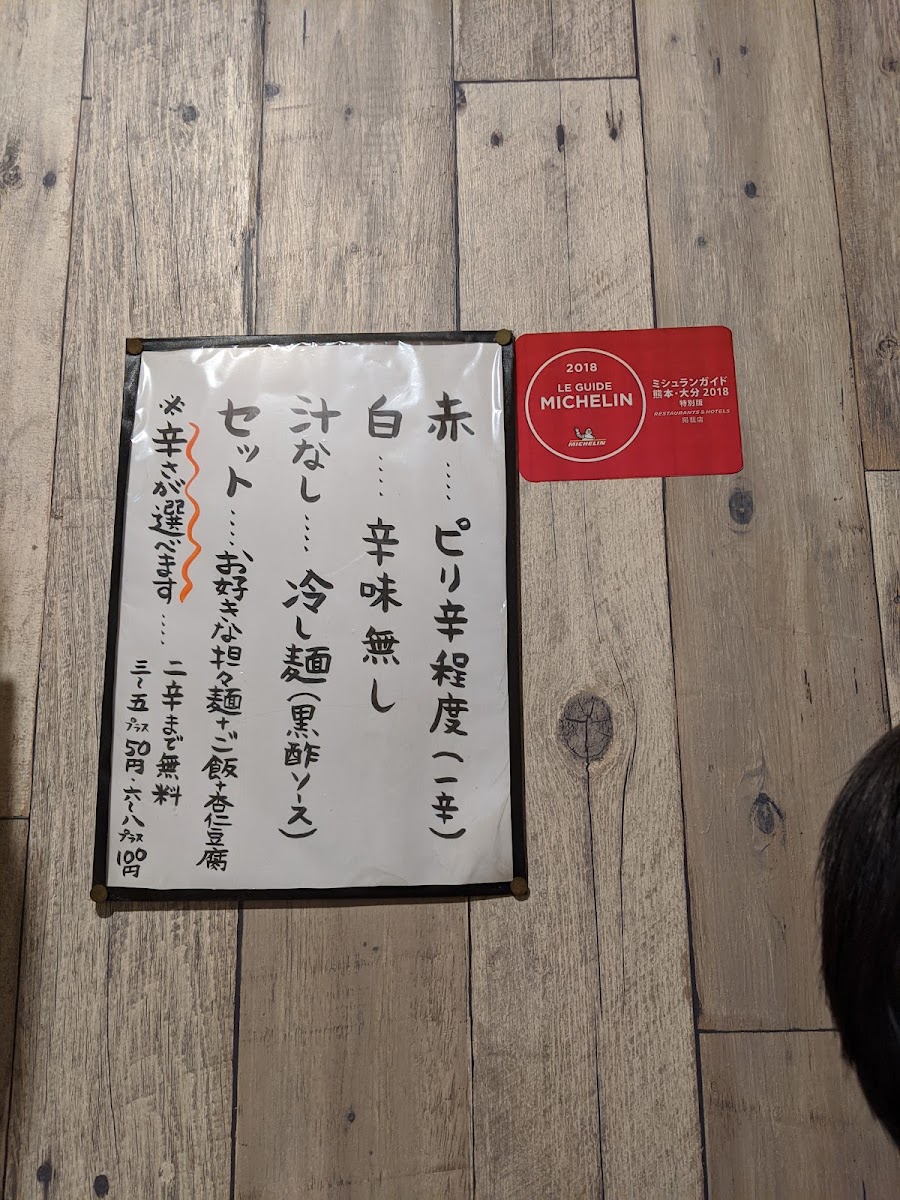 赤‥‥ピリ辛程度(一辛)
白‥‥辛味無し
汁なし‥‥冷し麺(黒酢ソース)
セット‥‥お好きな担々麺+ご飯+杏仁豆腐
※辛さが選べます‥‥
二辛まで無料
三〜五プラス50円・六〜八プラス100円
2018
LE GUIDE
MICHELIN
MICHELIN
ミシュランガイド
熊本・大分 2018
特別版
RESTAURANTS & HOTELS
掲載店